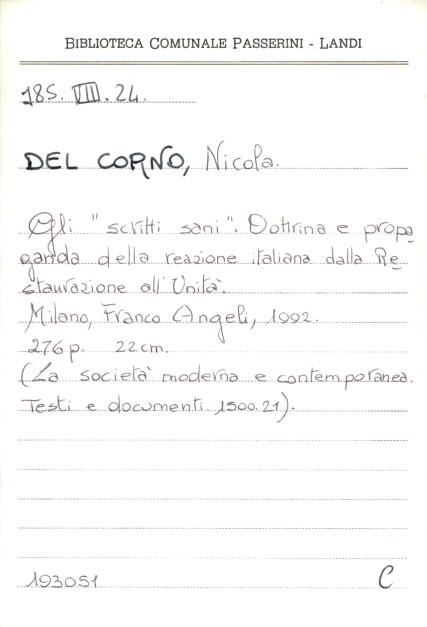 BIBLIOTECA COMUNALE PASSERINI - LANDI
185. VIII. 24.
DEL CORNO, Nicola.
Gli "scritti sani". Dottrina e propa
ganda della reazione italiana dalla Re
staurazione all'Unità.
Milano, Franco Angeli, 1992.
276 p. 22 cm.
(La società moderna e contemporanea.
Testi e documenti. 1500.21).
193051 C